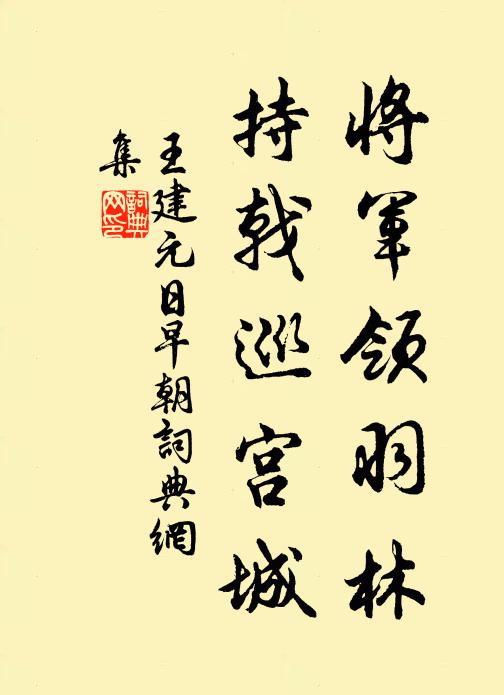 將軍領羽林
持戟巡宫城
王建元日早朝詞典網
集
詞典
网印